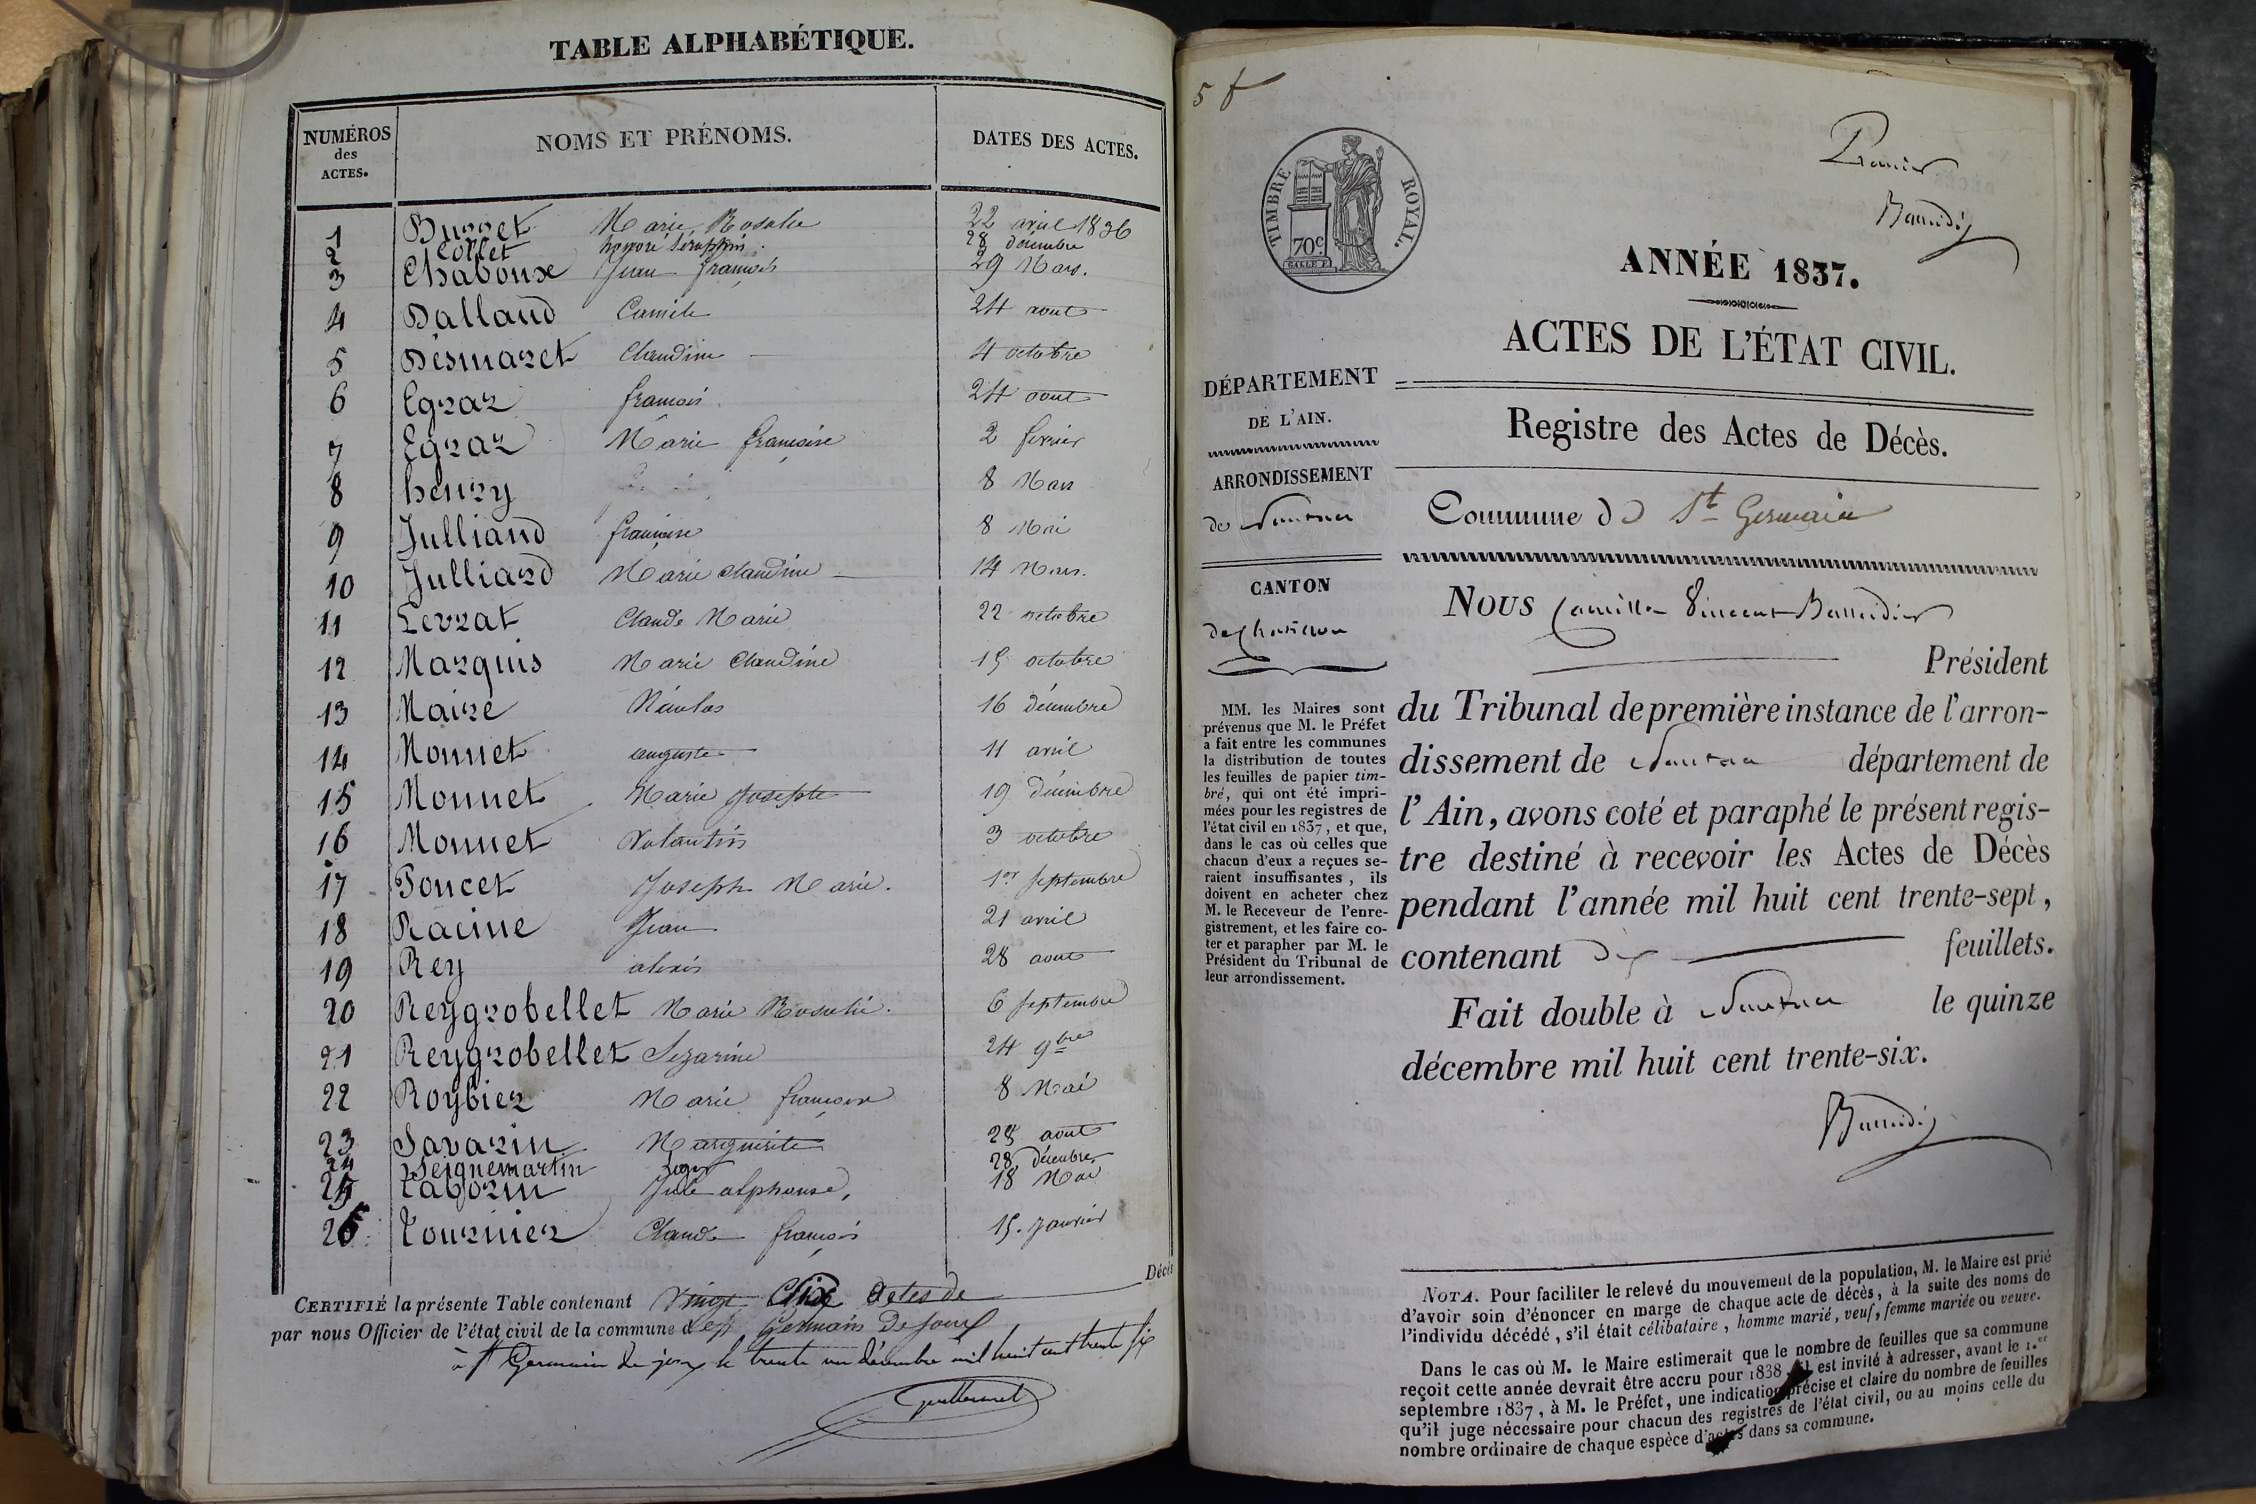 TABLE ALPHABÉTIQUE.
NUMÉROS des ACTES. NOMS ET PRÉNOMS. DATES DES ACTES.
1 Busset Marie Rosalie 22 avril 1836
2 Collet honoré Séraphin 28 décembre
3 Chaboux Jean françois 29 Mars.
4 Dalland Camile 24 aout
5 Désmaret Claudine 4 octobre
6 Egraz françois 24 aout
7 Egraz Marie françoise 2 fevrier
8 henry 8 Mars
9 Julliand françoise 8 Mai
10 Julliard Marie claudine 14 Mars.
11 Levrat Claude Marie 22 octobre
12 Marquis Marie Claudine 15 octobre
13 Maire Nicolas 16 décembre
14 Monnet auguste 11 avril
15 Monnet Marie Josephte 19 décembre
16 Monnet Valantin 3 octobre
17 Poncet Joseph Marie. 1er septembre
18 Racine Jean 21 avril
19 Rey alexis 28 aout
20 Reygrobellet Marie Rosalie. 6 septembre
21 Reygrobellet Sezarine 24 9bre
22 Roybier Marie françoise 8 Mai
23 Savarin Marguerite 25 aout
24 Seignemartin 28 décembre
25 Tavorin Jule alphonse, 18 Mai
26 Tournier Claude françois 15. Janvier
CERTIFIÉ la présente Table contenant vingt Six actes de Décès
par nous Officier de l'état civil de la commune de St Germain De Joux
à St Germain de joux le trente un décembre mil huit cent trente six
5 f
Premier
TIMBRE ROYAL.
70c
ANNÉE 1837.
ACTES DE L'ÉTAT CIVIL.
DÉPARTEMENT
DE L'AIN.
ARRONDISSEMENT
de Nantua
CANTON
MM. les Maires sont
prévenus que M. le Préfet
a fait entre les communes
la distribution de toutes
les feuilles de papier tim-
bré, qui ont été impri-
mées pour les registres de
l'état civil en 1837, et que,
dans le cas où celles que
chacun d'eux a reçues se-
raient insuffisantes, ils
doivent en acheter chez
M. le Receveur de l'enre-
gistrement, et les faire co-
ter et parapher par M. le
Président du Tribunal de
leur arrondissement.
Registre des Actes de Décès.
Commune de St Germain
NOUS Camille Vincent
Président
du Tribunal de première instance de l'arron-
dissement de Nantua département de
l'Ain, avons coté et paraphé le présent regis-
tre destiné à recevoir les Actes de Décès
pendant l'année mil huit cent trente-sept,
contenant dix feuillets.
Fait double à Nantua le quinze
décembre mil huit cent trente-six.
NOTA. Pour faciliter le relevé du mouvement de la population, M. le Maire est prié
d'avoir soin d'énoncer en marge de chaque acte de décès, à la suite des noms de
l'individu décédé, s'il était célibataire, homme marié, veuf, femme mariée ou veuve.
Dans le cas où M. le Maire estimerait que le nombre de feuilles que sa commune
reçoit cette année devrait être accru pour 1838, il est invité à adresser, avant le 1.er
septembre 1837, à M. le Préfet, une indication précise et claire du nombre de feuilles
qu'il juge nécessaire pour chacun des registres de l'état civil, ou au moins celle du
nombre ordinaire de chaque espèce d'actes dans sa commune.